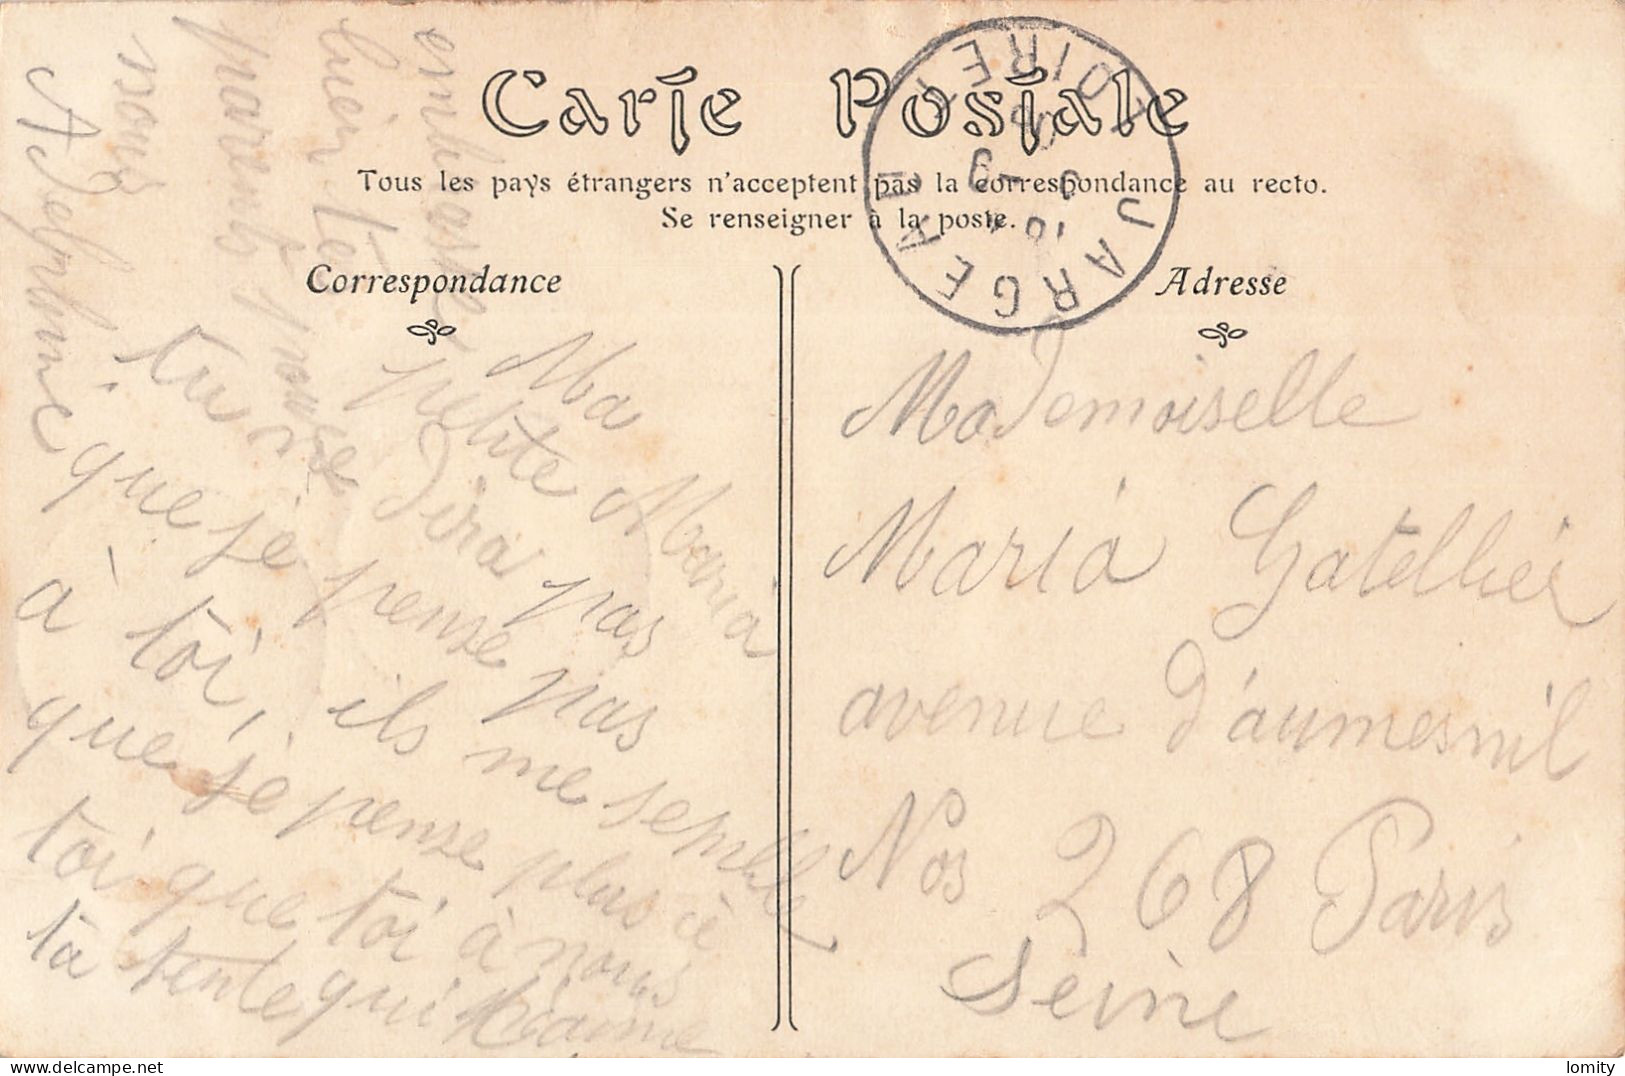 Carte Postale
Tous les pays étrangers n'acceptent pas la correspondance au recto.
Se renseigner à la poste.
Correspondance
Adresse
JARGEAU
LOIRET
Ma
petite Maria
tu ne dira pas
que je pense pas
à toi, ils me semble
que je pense plus à
toi que toi à nous
ta tente qui t'aime
Adelphine
embrasse
bien tes
parents pour
nous
Mademoiselle
Maria Gatellier
avenue d'aumesnil
Nos 268 Paris
Seine
delcampe.net
lomity